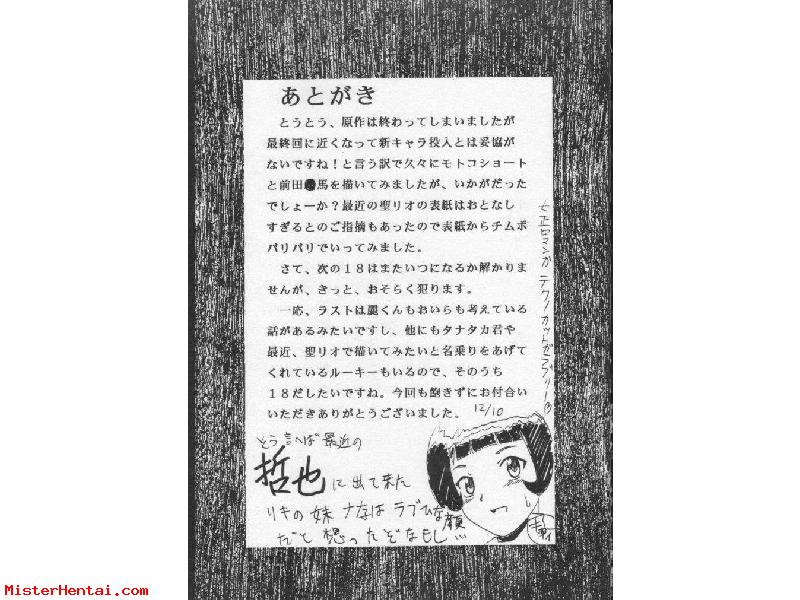 あとがき
とうとう、原作は終わってしまいましたが
最終回に近くなって新キャラ役入とは妥協が
ないですね!と言う訳で久々にモトコショート
と前田●馬を描いてみましたが、いかがだった
でしょーか?最近の聖リオの表紙はおとなし
すぎるとのご指摘もあったので表紙からチムポ
バリバリでいってみました。
さて、次の18はまたいつになるか解かりま
せんが、きっと、おそらく犯ります。
一応、ラストは麗くんもおいらも考えている
話があるみたいですし、他にもタナタカ君や
最近、聖リオで描いてみたいと名乗りをあげて
くれているルーキーもいるので、そのうち
18だしたいですね。今回も飽きずにお付合い
いただきありがとうございました。 12/10
とう言へば最近の
哲也に出て来た
リキの妹 ナナはラブひな顔
だと想ったぞなもし
MisterHentai.com